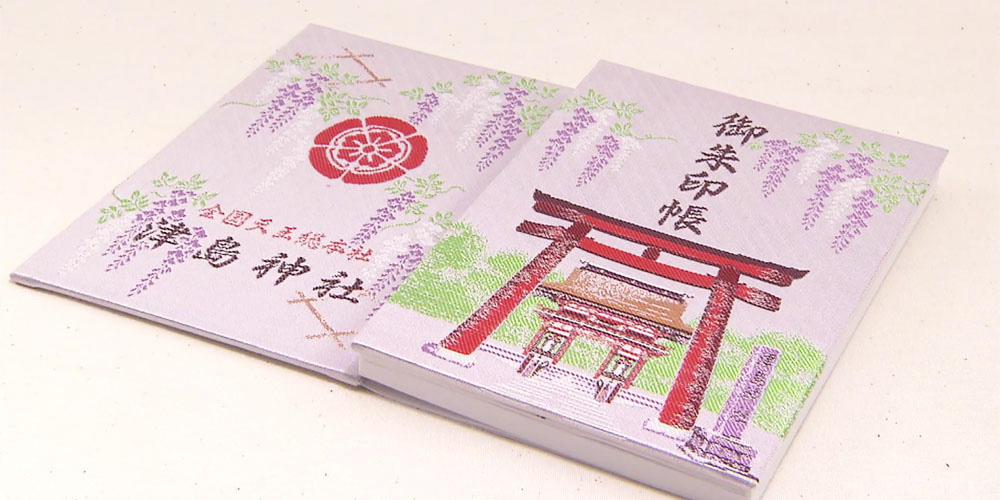 全国天王総本社
津島神社
御朱印帳